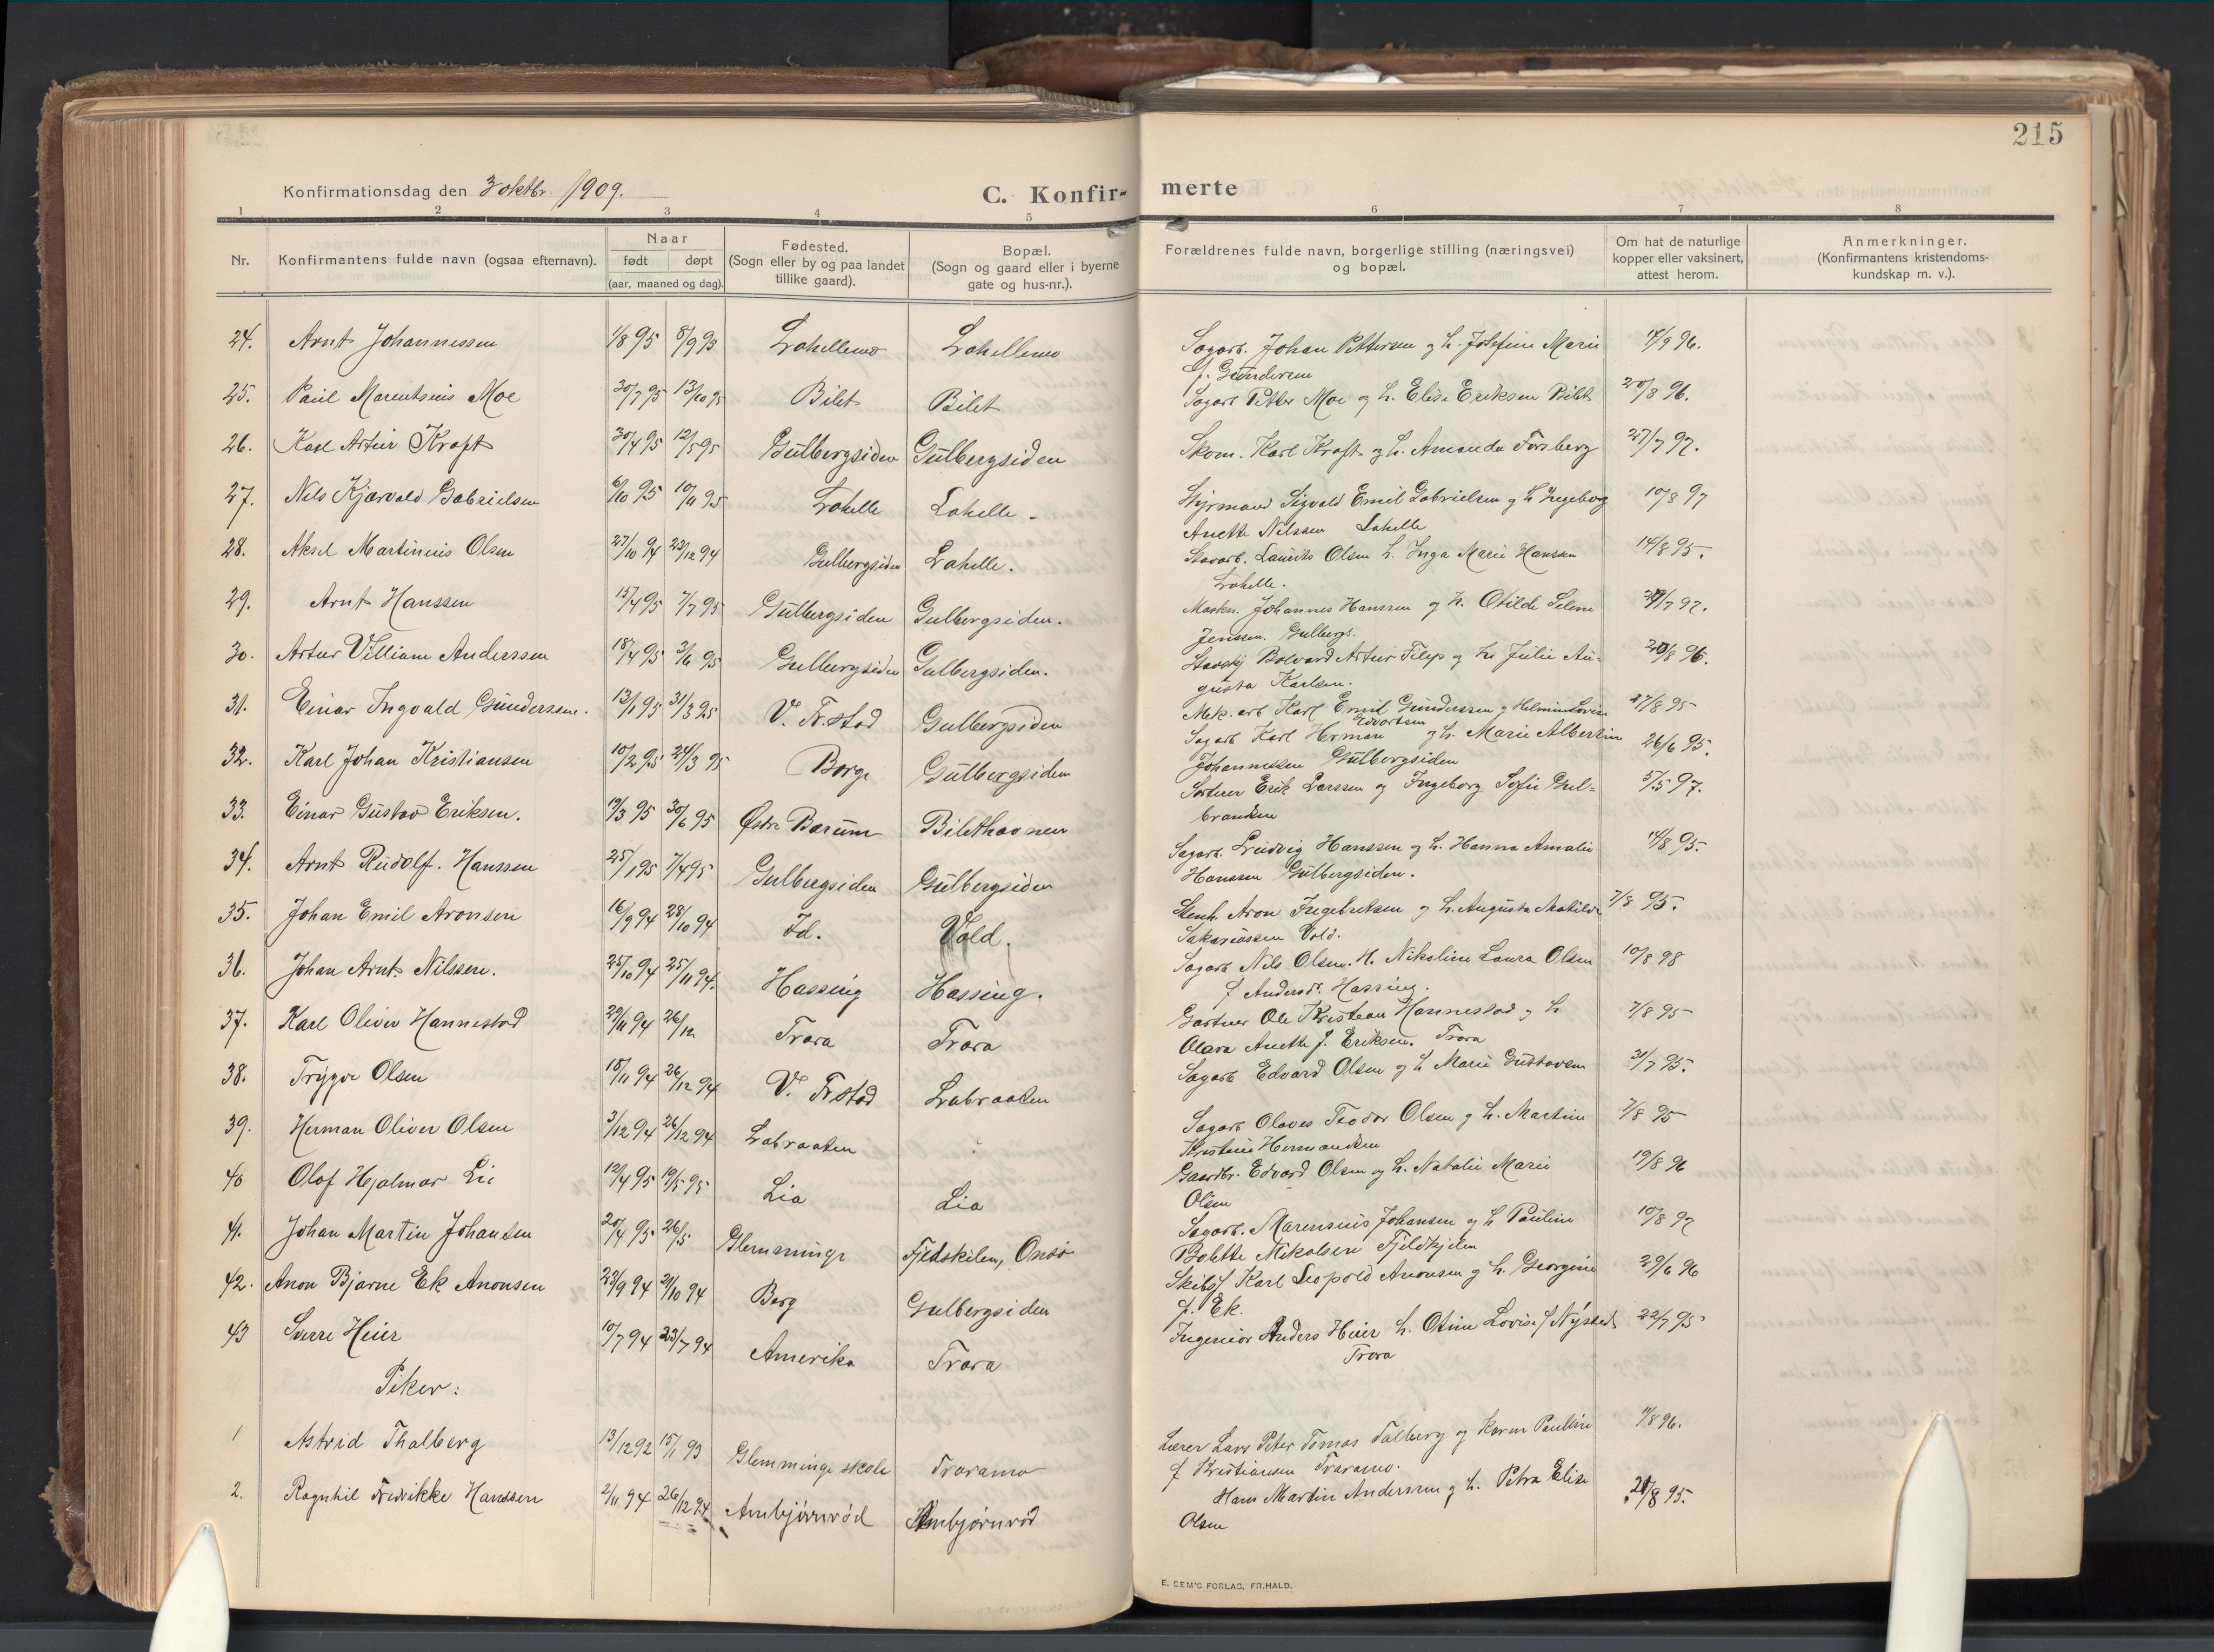 215
Konfirmationsdag den 3 oktbr. 1909.
C. Konfir- merte
1 2 3 4 5 6 7 8
Nr.
Konfirmantens fulde navn (ogsaa efternavn).
Naar
født døpt
(aar, maaned og dag).
Fødested.
(Sogn eller by og paa landet
tillike gaard).
Bopæl.
(Sogn og gaard eller i byerne
gate og hus-nr.).
Forældrenes fulde navn, borgerlige stilling (næringsvei)
og bopæl.
Om hat de naturlige
kopper eller vaksinert,
attest herom.
Anmerkninger.
(Konfirmantens kristendoms-
kundskap m. v.).
24. Arnt Johannessen 1/8 95 8/9 95 Lahellemo Lahellemo Sagarb. Johan Pettersen og h. Josefine Marie
f. Gundersen
25. Paul Marentsius Moe 30/7 95 13/10 95 Bilet Bilet Sagarb Petter Moe og h. Elise Eriksen Bilet 20/8 96.
26. Karl Artur Kraft 30/4 95 12/5 95 Gulbergsiden Gulbergsiden Skom. Karl Kraft og h. Amanda Forsberg 27/7 97.
27. Nils Kjærvald Gabrielsen 6/10 95 10/11 95 Lahelle Lahelle - Styrmand Sigvald Emil Gabrielsen og h Ingeborg 10/8 97
Anette Nilssen Lahelle
28. Aksel Martinius Olsen 27/10 94 23/12 94 Gulbergsiden Lahelle. Stavarb. Laurits Olsen h. Inga Marie Hansen 14/8 95.
Lahelle.
29. Arnt Hanssen 15/4 95 7/7 95 Gulbergsiden Gulbergsiden. Maskn. Johannes Hanssen og h. Otilde Selene
Jenssen. Gulbergs.
30. Artur Villiam Anderssen 18/4 95 3/6 95 Gulbergsiden Gulbergsiden. Artur Filip og h. Julie Au-
gusta Karlsen.
31. Einar Ingvald Gunderssen. 13/1 95 31/3 95 V. Fr.stad Gulbergsiden Mek. arb Karl Emil Gunderssen og 27/8 95
Edvartsen
32. Karl Johan Kristiansen 10/2 95 24/3 95 Borge Gulbergsiden Sagarb Karl Herman og h. Marie Albertine 26/6 95.
Johannessen Gulbergsiden
33. Einar Gustav Eriksen. 19/3 95 30/6 95 Østre Bærum Bilethavnen Sorterer Erik Larssen og Ingeborg Sofie Gul- 5/5 97.
brandsen
34. Arnt Rudolf. Hanssen 25/1 95 7/4 95 Gulbergsiden Gulbergsiden Sagarb. Ludvig Hanssen og h. Hanna Amalie 14/8 95.
Hanssen Gulbergsiden.
35. Johan Emil Aronsen 16/9 94 28/10 94 Id. Vold. Stenh. Aron Ingebretsen og h. Augusta Matilde 7/8 95.
Sakariassen Vold.
36. Johan Arnt. Nilssen. 25/10 94 25/11 94. Hassing Hassing. Sagarb Nils Olsen. H. Nikoline Laura Olsen 10/8 98
f Andersdr. Hassing.
37. Karl Oliver Hannestad 29/11 94 26/12 Trara Trara Gartner Ole Kristean Hannestad og h 7/8 95
Olava Anette f. Eriksen. Trara
38. Trygve Olsen 18/11 94 26/12 94 V. Fr.stad Labraaten Sagarb Edvard Olsen og h Marie Gustavsen 31/7 95.
39. Herman Oliver Olsen 3/12 94 26/12 94 Labraaten Sagarb Olaves Teodor Olsen og h. Martine 7/8 95
Kristine Hermansen
40 Olaf Hjalmar Lie 12/4 95 19/5 95 Lia Lia Gaardbr. Edvard Olsen og h. Natalie Marie 19/8 96
Olsen
41. Johan Martin Johansen 20/4 95 26/5 Glemminge Fjeldskilen, Onsø Sagarb. Marensius Johansen og h Pauline 10/8 97
Bolette Mikalsen Fjeldkjelen
42. Anon Bjarne Ek Anonsen 23/9 94 21/10 94 Berg Gulbergsiden Skibsf Karl Leopold Anonsen og h. Georgine 29/6 96
f. Ek.
43 Sverre Heier 10/7 94 23/7 94 Amerika Trara Ingeniør Anders Heier h. Otine Lovise f Nysted 22/7 95
Trara
Piker:
1 Astrid Thalberg 13/12 92 15/1 93 Glemminge skole Traramo Lærer Lars Peter Tomas Talberg og Karen Pauline 11/8 96.
f Kristiansen Traramo.
2. Ragnhil Fredrikke Hanssen 2/11 94 26/12 94 Ambjørnrød Ambjørnrød Hans Martin Anderssen og h. Petra Elise 21/8 95.
Olsen
E. SEM'S FORLAG, FR.HALD.